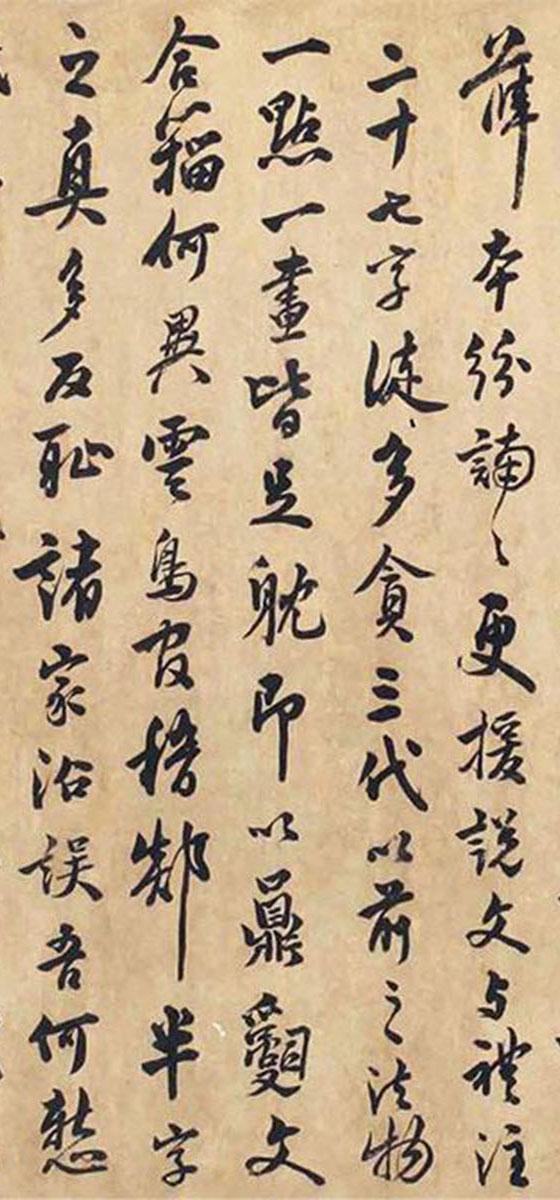 薛本紛諵々更援說文与禮注
二十七字徒多貪三代以前之法物
一點一畫皆足躭即以鼎文
含籀何異雲鳥官稽半字
之真多反恥諸家沿誤吾何